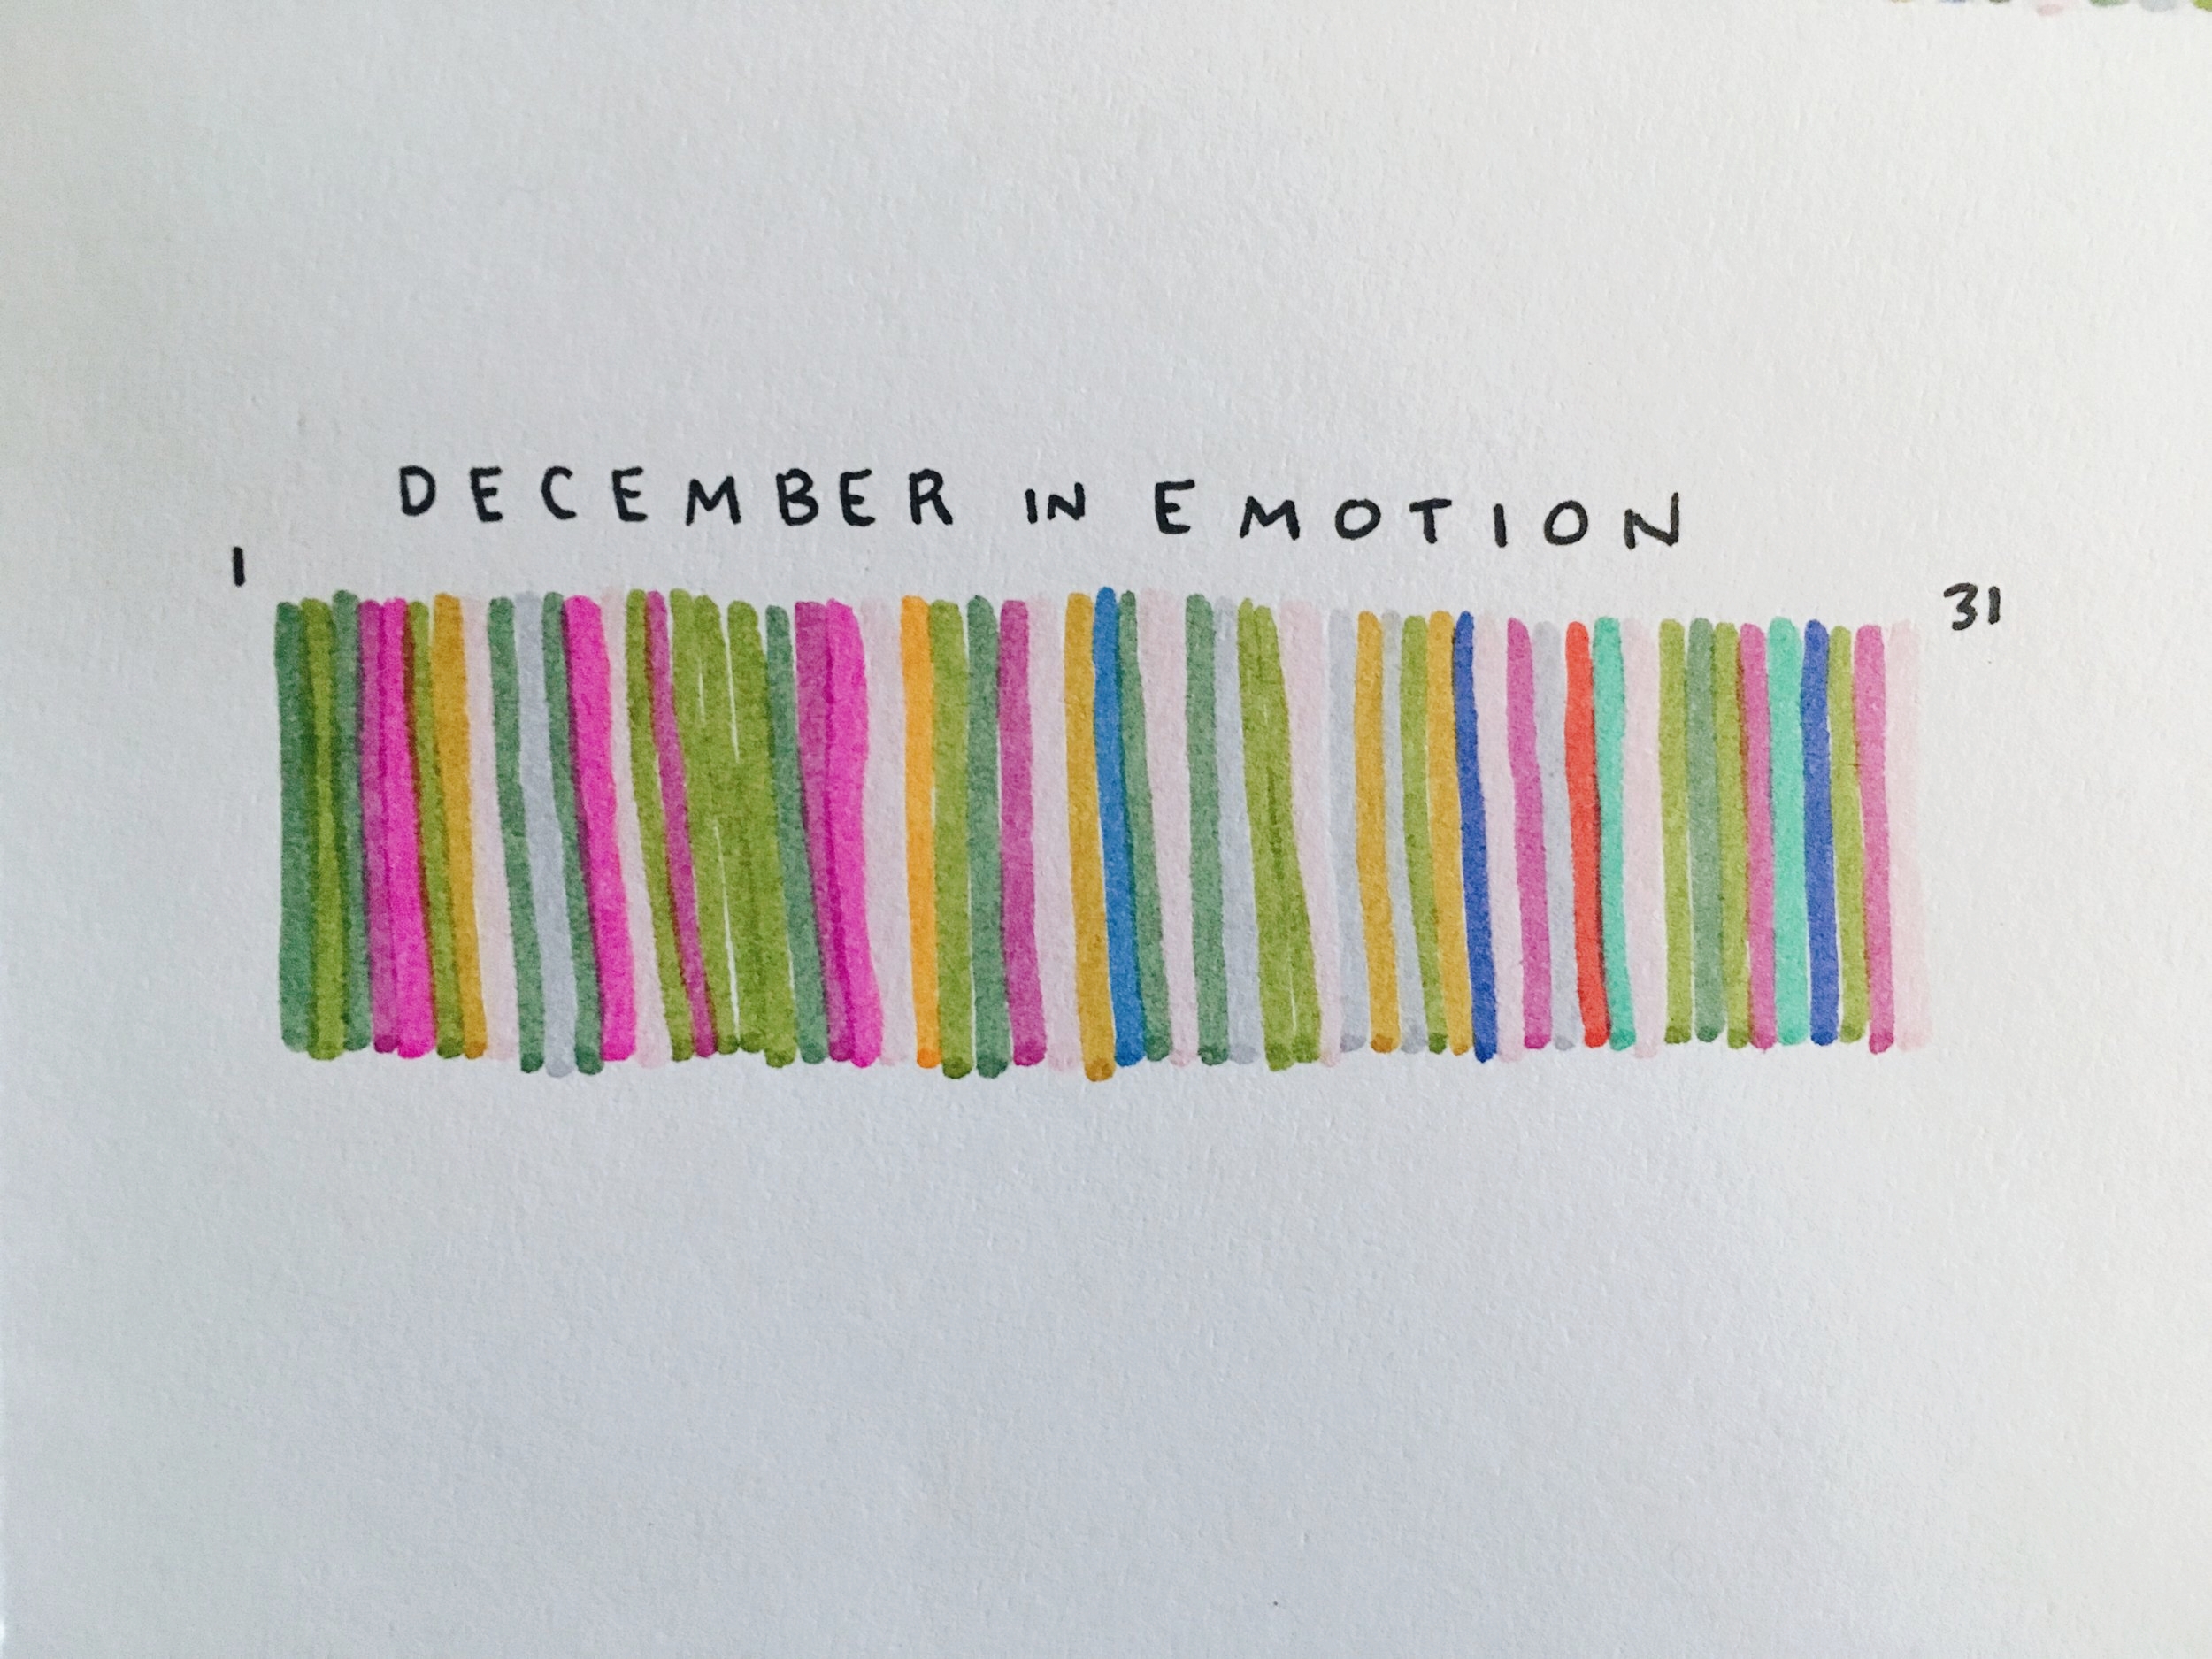 DECEMBER IN EMOTION
1
31